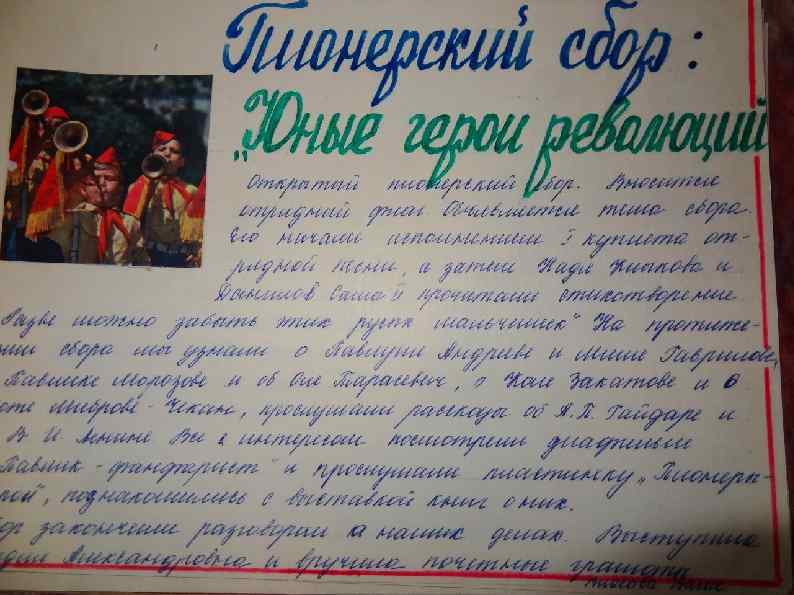 Пионерский сбор:
"Юные герои революции
Открытый пионерский сбор. Вносится
отрядный флаг Объявляется тема сбора.
Его начали исполнением I куплета от-
рядной песни, а затем Надя Клочкова и
Данилов Саша прочитали стихотворение
Разве можно забыть этих русых мальчишек" На протяже-
нии сбора мы узнали о Павлуше Андрееве и Мише Гаврилове,
Павлике Морозове и об Оле Тарасевич, о Коле Закатове и о
Чекан, прослушали рассказы об А.П. Гайдаре и
В И Ленине Все с интересом посмотрели диафильм
Павлик - фанфарист" и прослушали пластинку „Пионеры-
рои", познакомились с выставкой книг о них.
ор закончили разговором о наших делах. Выступила
Александровна и вручила почетные грамоты